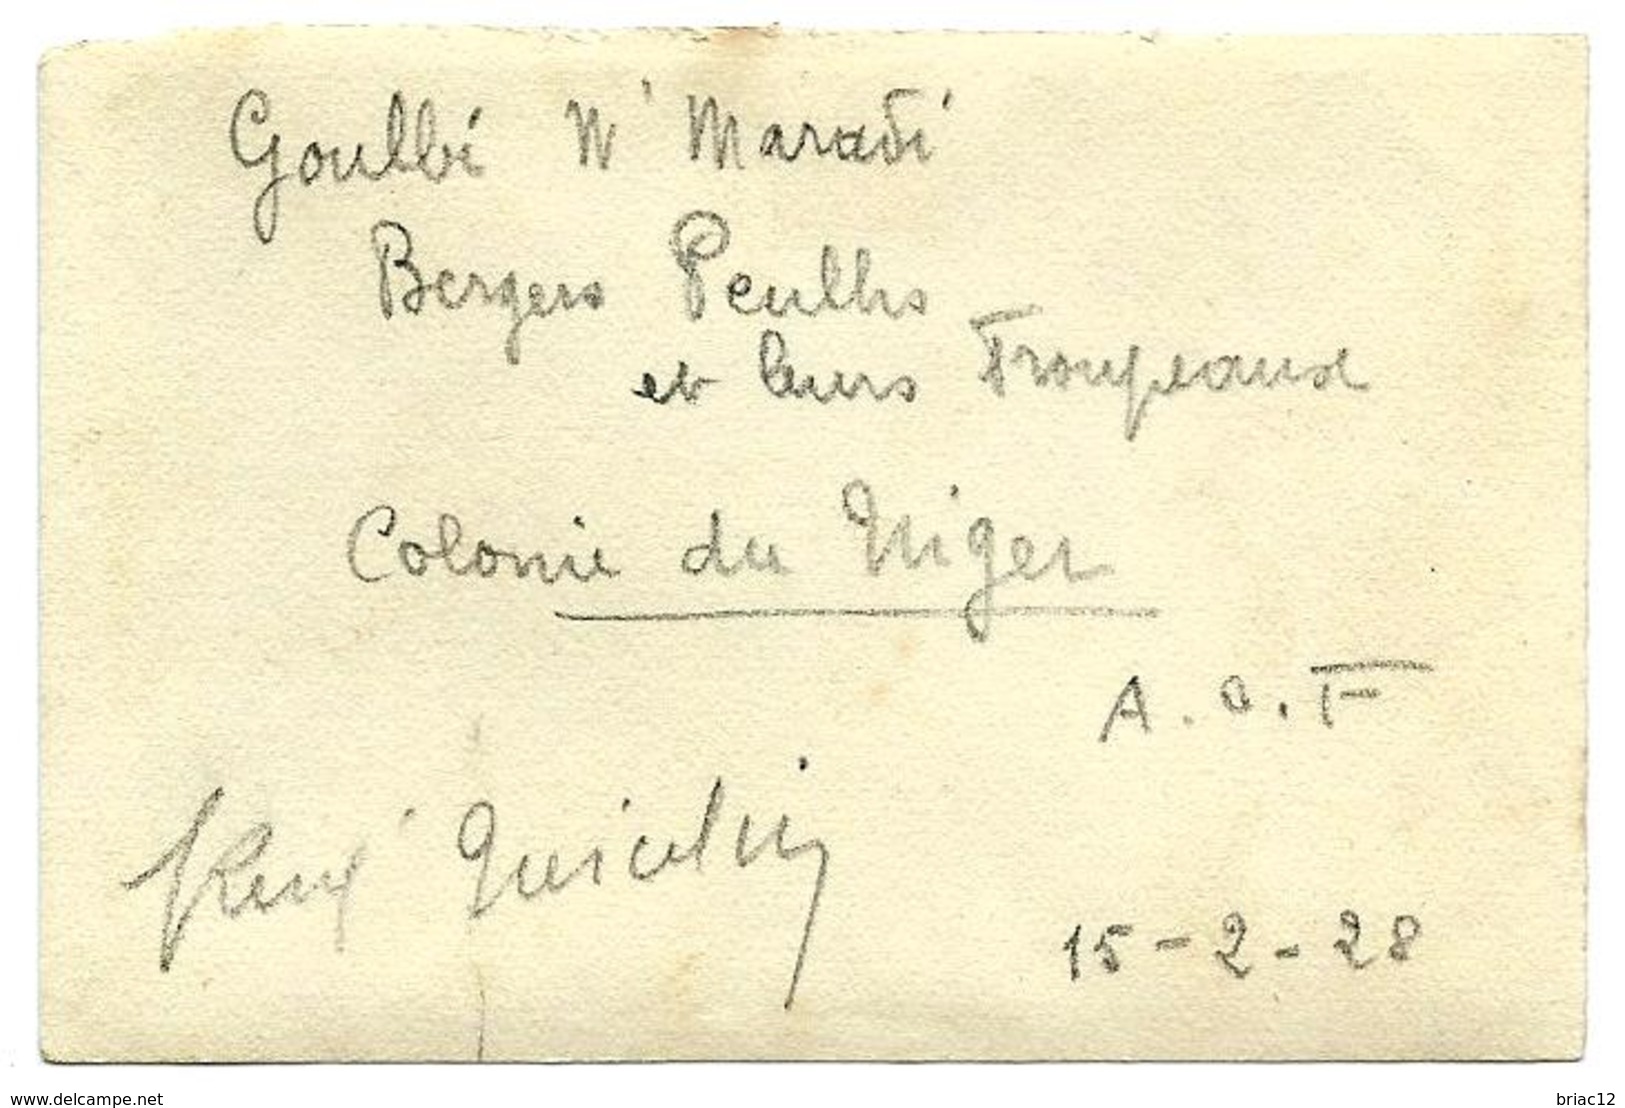 Goulbi N' Maradi
Bergers Peulhs
et leurs Troupeaux
Colonie du Niger
A.O.F
René
15-2-28
www.delcampe.net
briac12